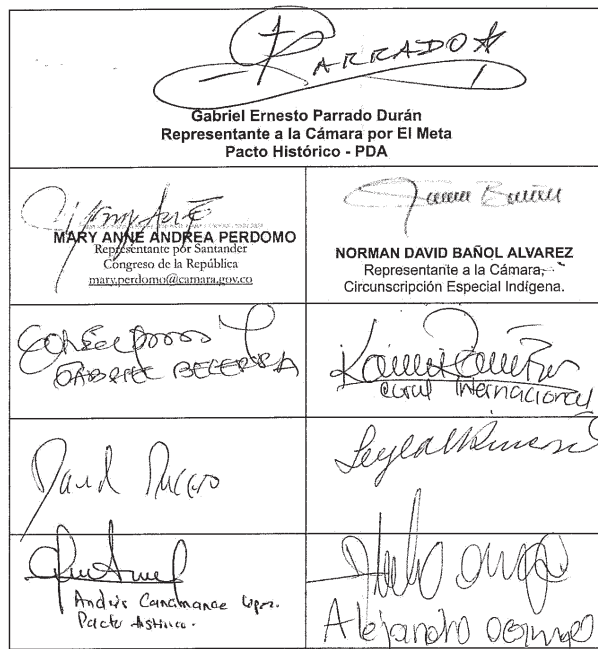 PARRADO
Gabriel Ernesto Parrado Durán
Representante a la Cámara por El Meta
Pacto Histórico - PDA
MARY ANNE ANDREA PERDOMO
Representante por Santander
Congreso de la República
mary.perdomo@camara.gov.co
NORMAN DAVID BAÑOL ALVAREZ
Representante a la Cámara,
Circunscripción Especial Indígena.
GABRIEL BECERRA
curul Internacional
David Racero
Andrés Cancimance López.
Pacto Histórico.
Alejandro Ocampo